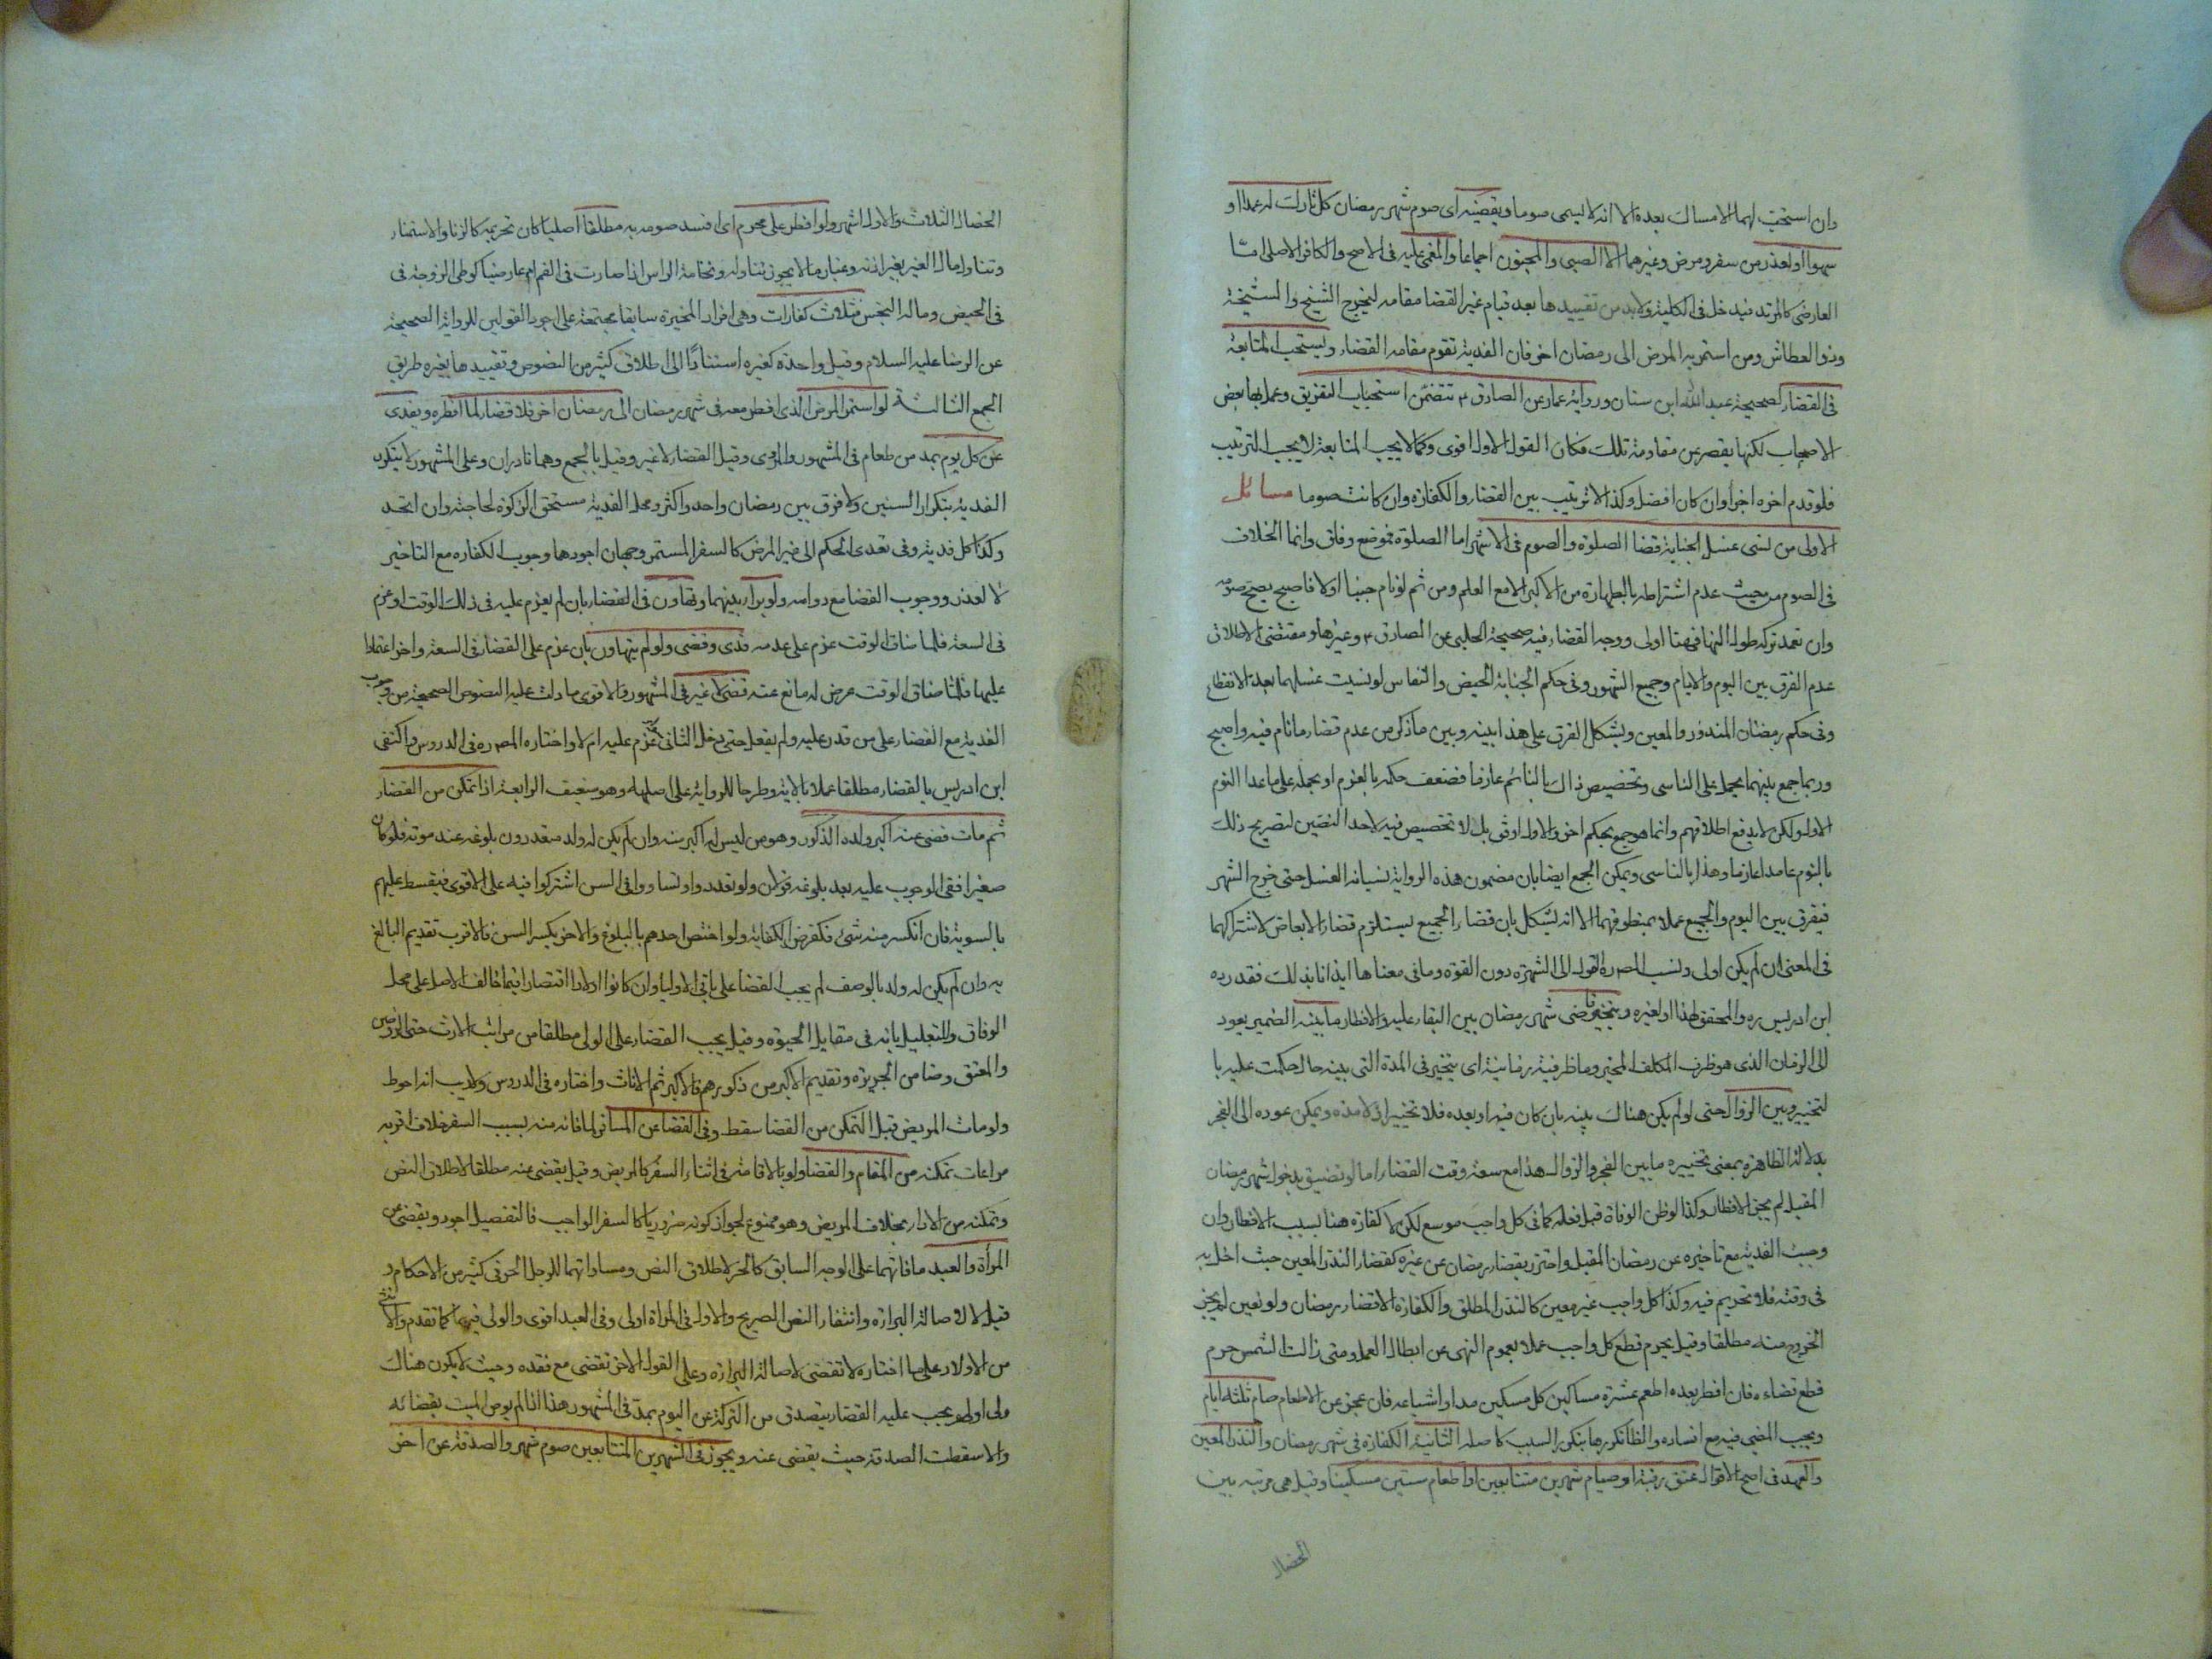 وان استحب لهما الامساك بعده الا انه لا يسمى صوما ويقضيه اى صوم شهر رمضان كل تارك له عمدا او
سهوا او لعذر من سفر ومرض وغيرهما الا الصبى والمجنون اجماعا والمغمى عليه فى الاصح والكافر الاصلى امّا
العارضى كالمرتد فيدخل فى الكلية ولا بد من تقييدها بعدم قيام غير القضا مقامه ليخرج الشيخ والشيخة
وذو العطاش ومن استمر به المرض الى رمضان اخر فان الفدية تقوم مقامه القضاء ويستحب المتابعة
فى القضاء لصحيحة عبد الله ابن سنان ورواية عمار عن الصادق ع تتضمن استحباب التفريق وعمل بها بعض
الاصحاب لكنها يقصر عن مقاومة تلك فكان القول الاول اقوى وكما لا يجب المتابعة لا يجب الترتيب
فلو قدم اخره اجزأ وان كان افضل وكذا لا ترتيب بين القضاء والكفارة وان كانت صوما مسائل
الاولى من نسى غسل الجنابة قضا الصلوة والصوم فى الاشهر اما الصلوة فموضع وفاق وانما الخلاف
فى الصوم من حيث عدم اشتراطه بالطهارة من الاكبر الا مع العلم ومن ثم لو نام جنبا اولا فاصبح يصح صومه
وان تعمد تركه طول النهار فهنا اولى ووجه القضاء فيه صحيحة الحلبى عن الصادق ع وغيرها ومقتضى الاطلاق
عدم الفرق بين اليوم والايام وجميع الشهور وفى حكم الجنابة الحيض والنفاس لو نسيت غسلهما بعد الانقطاع
وفى حكم رمضان المنذور والمعين ويشكل الفرق على هذا بينه وبين ما ذكر من عدم قضاء ما نام فيه واصبح
وربما جمع بينهما بحمل على الناسى وتخصيص ذاك بالنائم عازما فضعف حكمه بالعزم او بحمله على ما عدا النوم
الاول ولكن لا يدفع اطلاقهم وانما هو جمع بحكم اخر والاول اوفق بل لا تخصيص فيه لاحد النصين لتصريح ذلك
بالنوم عامدا عازما وهذا بالناسى ويمكن الجمع ايضا بان مضمون هذه الرواية نسيانه الغسل حتى خرج الشهر
فيفرق بين اليوم والجميع عملا بمنطوقهما الا انه يشكل بان قضاء الجميع يستلزم قضاء الابعاض لاشتراكهما
فى المعنى ان لم يكن اولى ونسب المصره القول الى الشهرة دون القوة وما فى معناها ايذانا بذلك فقد رده
ابن ادريس ره والمحقق لهذا او لغيره ويتخير قاضى شهر رمضان بين البقاء عليه والافطار ما بينه الضمير يعود
الى الزمان الذى هو ظرف المكلف المخير وما ظرفية زمانية اى يتخير فى المدة التى بينه حال حكمت عليه با
لتخيير وبين الزوال حتى لو لم يكن هناك بينه بان كان فيه او بعده فلا تخيير اذ لا مدة ويمكن عوده الى الفجر
بدلالة الظاهر بمعنى تخييره ما بين الفجر والزوال هذا مع سعة وقت القضاء اما لو تضيق بدخول شهر رمضان
المقبل لم يجز الافطار وكذا لو ظن الوفاة قبل فعله كما فى كل واجب موسع لكن لا كفارة هنا بسبب الافطار وان
وجبت الفدية مع تاخيره عن رمضان المقبل واحترز بقضاء رمضان عن غيره كقضاء النذر المعين حيث اخل به
فى وقته فلا تحريم فيه وكذا كل واجب غير معين كالنذر المطلق والكفارة الا قضاء رمضان ولو تعين لم يجز
الخروج منه مطلقا وقيل يحرم قطع كل واجب عملا بعموم النهى عن ابطال العمل ومتى زالت الشمس حرم
قطع قضاءه فان افطر بعده اطعم عشرة مساكين كل مسكين مدا او اشباعه فان عجز عن الاطعام صام ثلثة ايام
ويجب المضى فيه مع افساده والظا تكررها بتكرر السبب كاصله الثانية الكفارة فى شهر رمضان والنذر المعين
والعهد فى اصح الاقوال عتق رقبة او صيام شهرين متتابعين او اطعام ستين مسكينا وقيل هى مرتبه بين
الخصال
الخصال الثلاث والاول اشهر ولو افطر على محرم اى افسد صومه به مطلقا اصليا كان تحريمه كالزنا والاستمناء
وتناول مال الغير بغير اذنه وغبار ما لا يجوز تناوله ونخامة الراس اذا صارت فى الفم ام عارضيا كوطى الزوجة فى
فى الحيض وماله النجس فثلاث كفارات وهى افراد المخيرة سابقا مجتمعة على اجود القولين للرواية الصحيحة
عن الرضا عليه السلام وقيل واحدة كغيره استنادًا الى اطلاق كثير من النصوص وتقييدها بغيره طريق
الجمع الثالثة لو استمر المرض الذى افطر معه فى شهر رمضان الى رمضان اخر فلا قضاء لما افطره ويفدى
عن كل يوم بمد من طعام فى المشهور والمروى وقيل القضاء لا غير وقيل بالجمع وهما نادران وعلى المشهور لا يتكرر
الفدية بتكرار السنين ولا فرق بين رمضان واحد واكثر ومحل الفدية مستحق الزكوة لحاجته وان اتحد
وكذا كل فدية وفى تعدى الحكم الى غير المرض كالسفر المستمر وجهان اجودهما وجوب الكفاره مع التاخير
لا لعذر ووجوب القضا مع دوامه ولو برأ بينهما وتهاون فى القضاء بان لم يعزم عليه فى ذلك الوقت او عزم
فى السعة فلما ضاق الوقت عزم على عدمه فدى وقضى ولو لم يتهاون بان عزم على القضاء فى السعة واخر اعتمادا
عليها فلما ضاق الوقت عرض له مانع عنه قضى لا غير فى المشهور والاقوى ما دلت عليه النصوص الصحيحة من وجوب
الفدية مع القضاء على من قدر عليه ولم يفعل حتى دخل الثانى عزم عليه ام لا واختاره المصره فى الدروس واكتفى
ابن ادريس بالقضاء مطلقا عملا بالاية وطرحا للرواية على اصله وهو ضعيف الرابعة اذا تمكن من القضاء
ثم مات قضى عنه اكبر ولده الذكور وهو من ليس له اكبر منه وان لم يكن له ولد متعددون بلوغه عند موته فلو كان
صغيرا ففى الوجوب عليه بعد بلوغه قولان ولو تعددوا وتساووا فى السن اشتركوا فيه على الاقوى فيقسط عليهم
بالسوية فان انكسر منه شئ فكفرض الكفاية ولو اختص احدهم بالبلوغ والاخر بكبر السن فالاقرب تقديم البالغ
به وان لم يكن له ولد بالوصف لم يجب القضا على باقى الاوليا وان كانوا اولادا اقتصارا فيما خالف الاصل على محل
الوفاق وللتعليل بانه فى مقابل الحبوة وقيل يجب القضاء على الولى مطلقا من مراتب الارث حتى الزوجين
والمعتق وضامن الجريرة وتقديم الاكبر من ذكورهم فالاكبر ثم الاناث واختاره فى الدروس ولا ريب انه احوط
ولو مات المريض قبل التمكن من القضا سقط وفى القضا عن المسافر لما فاته منه بسبب السفر خلاف اقربه
مراعات تمكنه من المقام والقضا ولو بالاقامة فى اثناء السفر كالمريض وقيل يقضى عنه مطلقا لاطلاق النص
وتمكنه من الاداء بخلاف المريض وهو ممنوع لجواز كونه ضروريا كالسفر الواجب فالتفصيل اجود ويقضى عن
المرأة والعبد ما فاتهما على الوجه السابق كالحر لاطلاق النص ومساواتهما للرجل الحر فى كثير من الاحكام و
قيل لا لاصالة البراءة وانتفاء النص الصريح والاول فى المراة اولى وفى العبد اقوى والولى فيهما كما تقدم والانثى
من الاولاد على ما اختاره لا تقضى لاصالة البراءة وعلى القول الاخر تقضى مع فقده وحيث لا يكون هناك
ولى او لم يجب عليه القضاء يتصدق من التركة عن اليوم بمد فى المشهور هذا اذا لم يوص الميت بقضائه
والا سقطت الصدقة حيث يقضى عنه ويجوز فى الشهرين المتتابعين صوم شهر والصدقة عن اخر